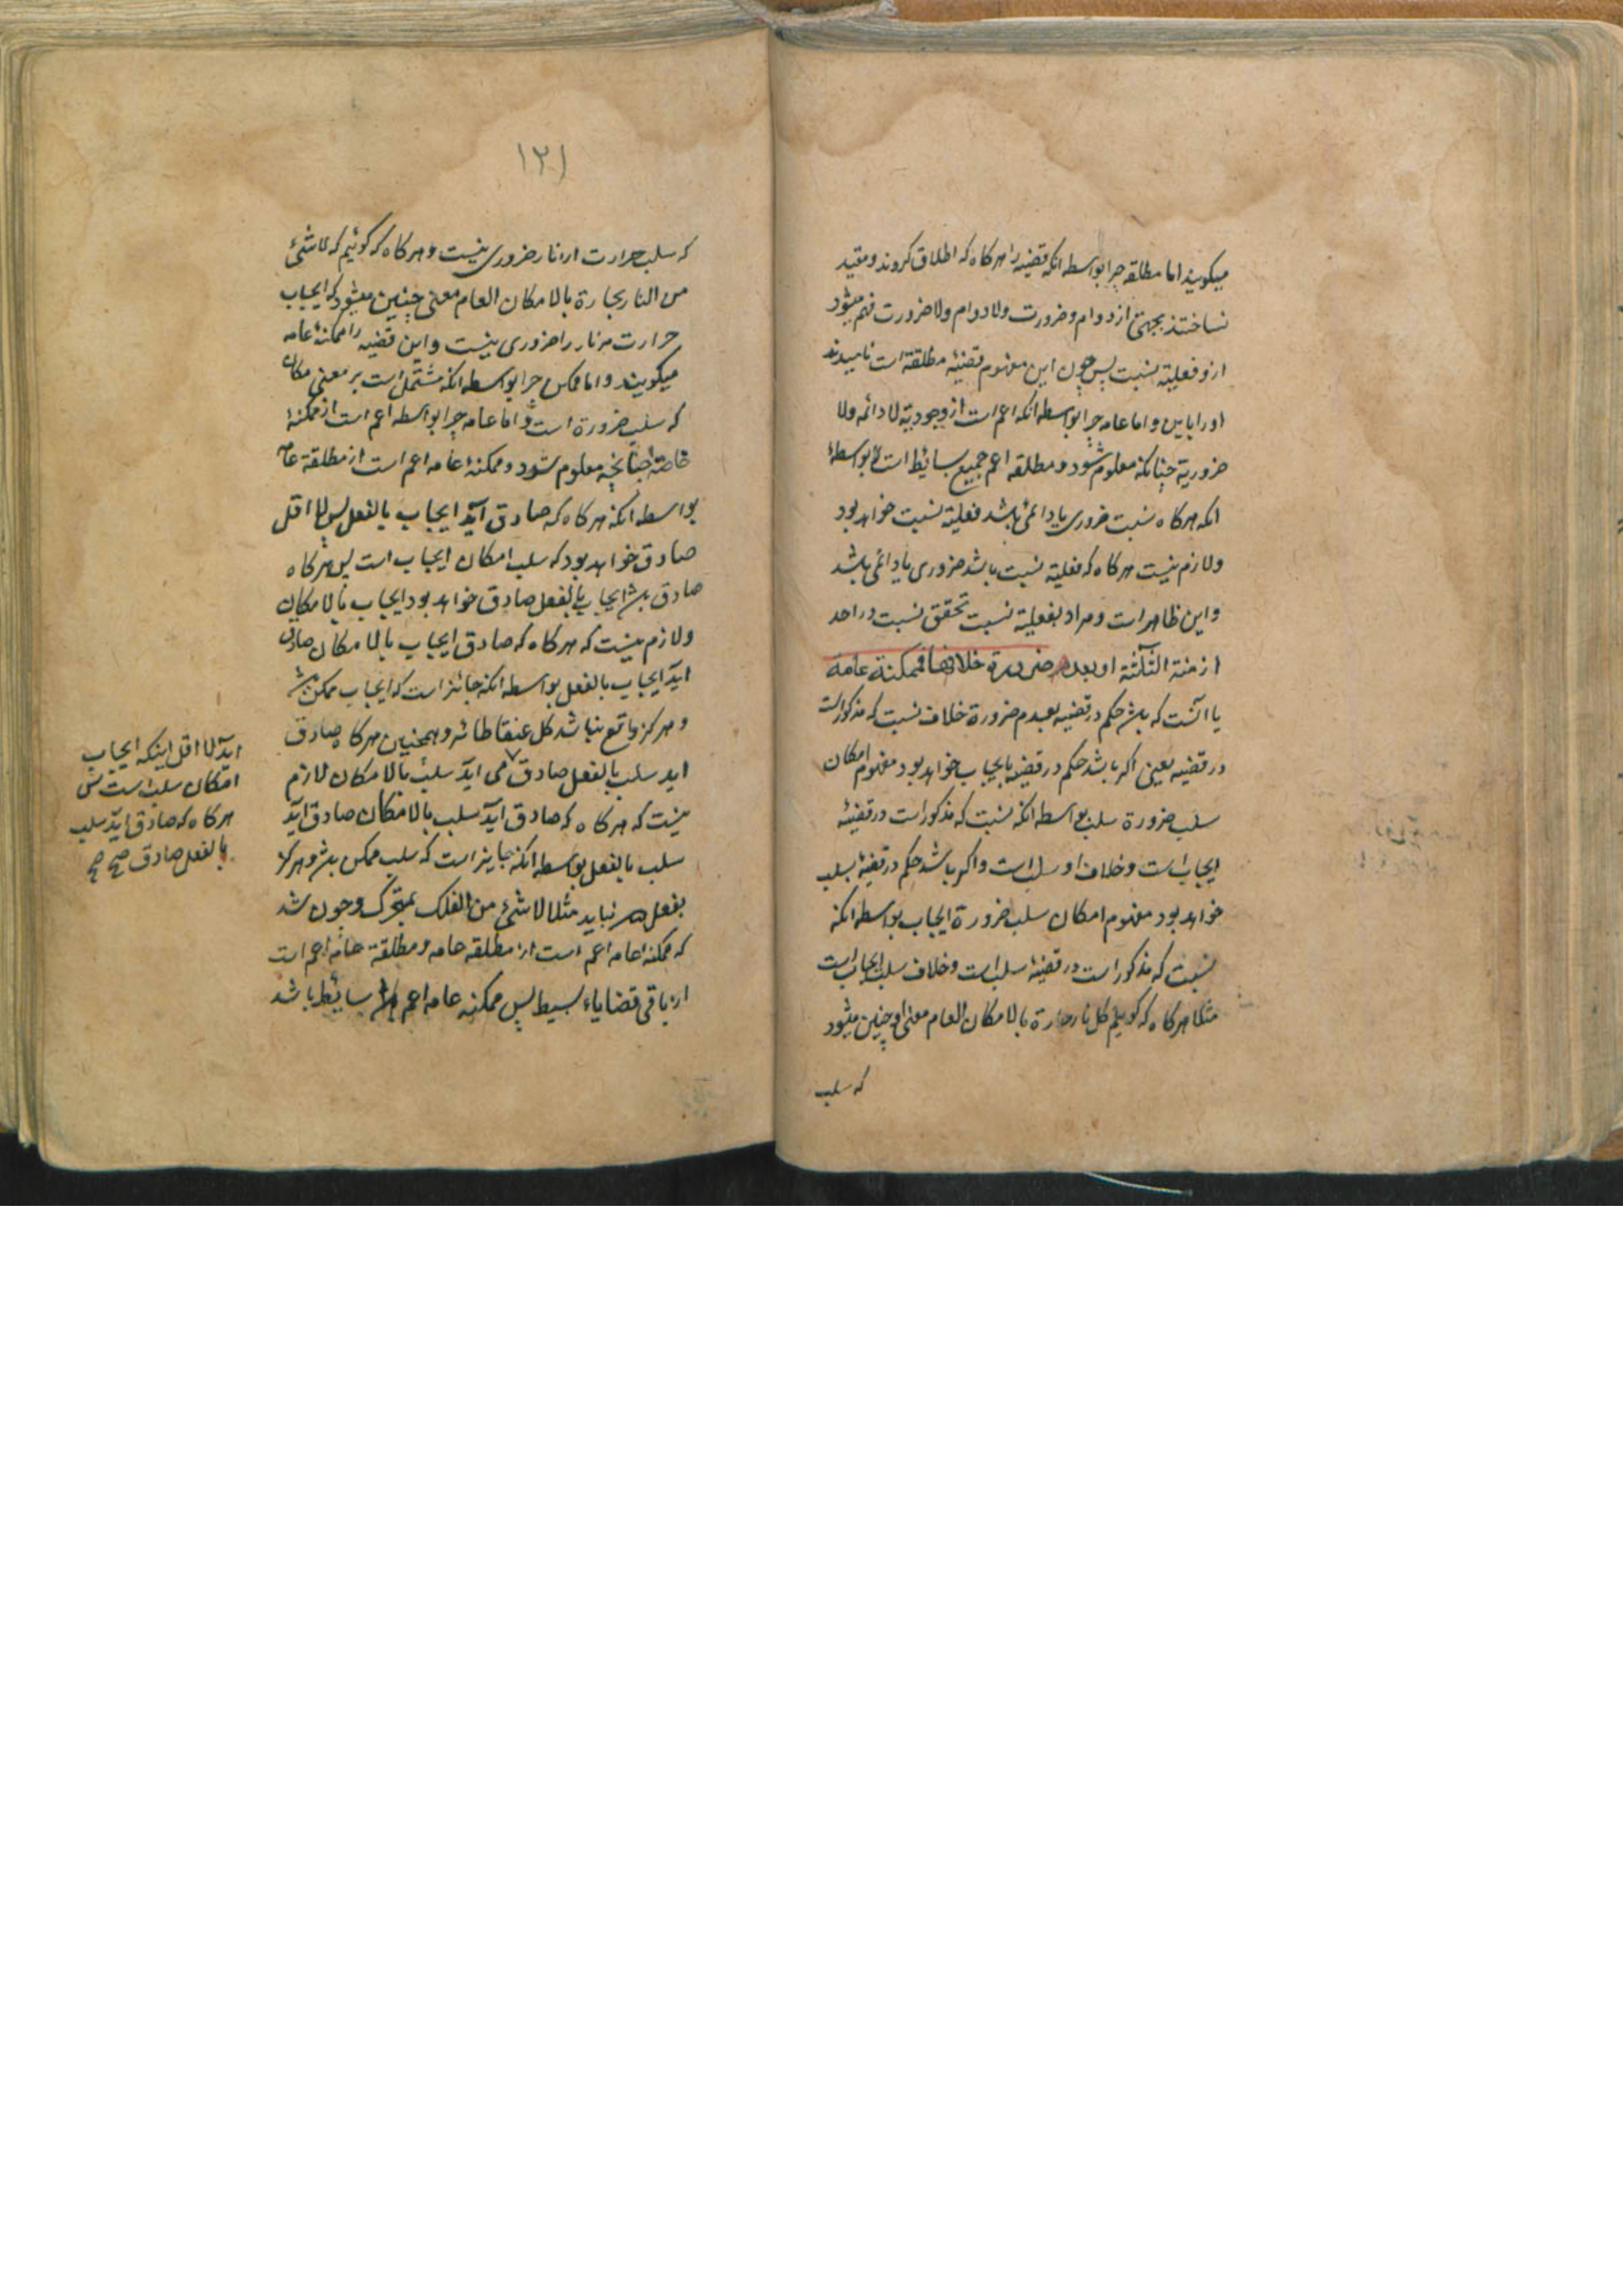 میکویند اما مطلقه چرا بواسطه انکه قضیه را هرکاه که اطلاق کروند و مقید
نساختند بجهتی از دوام و ضرورت ولا دوام ولا ضرورت فهم میشود
ازو فعلیة نسبت پس چون این مفهوم قضیهٔ مطلقة است نامیدند
اورا باین و اما عامه چرا بواسطه انکه اعم است از وجودیة لا دائمه ولا
ضروریة چنانکه معلوم شود و مطلقه اعم جمیع بسائط است بواسطهٔ
انکه هرکاه نسبت ضروری یا دائمی باشد فعلیة نسبت خواهد بود
ولازم نیست هرکاه که فعلیة نسبت باشد ضروری یا دائمی باشد
واین ظاهر است و مراد بفعلیة نسبت تحقق نسبت در احد
ازمنة الثلثة او بعدم ضرورة خلافها فممکنة عامة
یا انست که باشد حکم در قضیه بعدم ضرورة خلاف نسبت که مذکورات
در قضیه یعنی اکر باشد حکم در قضیه بایجاب خواهد بود مفهوم امکان
سلب ضرورة سلب بواسطه انکه نسبت که مذکور است در قضیهٔ
ایجاب است و خلاف او سلب است و اکر باشد حکم در قضیهٔ بسلب
خواهد بود مفهوم امکان سلب ضرورة ایجاب بواسطه انکه
نسبت که مذکور است در قضیهٔ سلب است و خلاف سلب ایجاب است
مثلا هرکاه که کوییم کل نار حارة بالامکان العام معنی او چنین میشود
که سلب
۱۲۱
که سلب حرارت از نار ضروری نیست و هرکاه که کوئیم که لا شئ
من النار بحارة بالامکان العام معنی چنین میشود که ایجاب
حرارت مر نار را ضروری نیست واین قضیه را ممکنهٔ عامه
میکویند و اما ممکن چرا بواسطه انکه مشتمل است بر معنی امکان
که سلب ضرورة است و اما عامه چرا بواسطه اعم است از ممکنهٔ
خاصة چنانچه معلوم شود و ممکنهٔ عامه اعم است از مطلقة عامه
بواسطه انکه هرکاه که صادق آید ایجاب بالفعل پس لا اقل
صادق خواهد بود که سلب امکان ایجاب است پس هرکاه
صادق باشد ایجاب بالفعل صادق خواهد بود ایجاب بالامکان
ولازم نیست که هرکاه که صادق ایجاب بالامکان صادق
آید ایجاب بالفعل بواسطه انکه جائز است که ایجاب ممکن باشد
و هرکز واقع نباشد کل عنقا طائر و همچنین هرکاه صادق
اید سلب بالفعل صادق می اید سلب بالامکان لازم
نیست که هرکاه که صادق آید سلب بالامکان صادق آید
سلب بالفعل بواسطه انکه جایز است که سلب ممکن باشد و هرکز
بفعل نیاید مثلا لا شئ من الفلک بمتحرک و چون شد
که ممکنهٔ عامه اعم است از مطلقه عامه و مطلقة عامه اعم است
از باقی قضایاء بسیط پس ممکنه عامه اعم بسائط باشد
آید لا اقل اینکه ایجاب
امکان سلب است پس
هرکاه که صادق آید سلب
بالفعل صادق صح صح